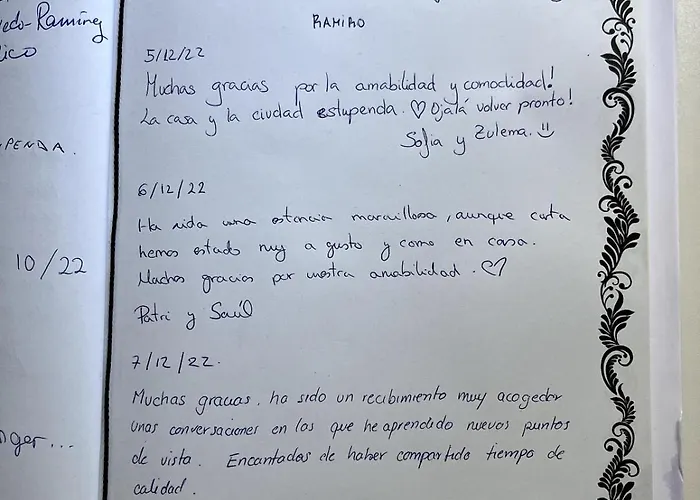 edo-Ramírez
ico
PENDA.
10/22
nger...
RAMIRO
5/12/22
Muchas gracias por la amabilidad y comodidad!
La casa y la ciudad estupenda. ♡ Ojalá volver pronto!
Sofia y Zulema. :)
6/12/22
Ha sido una estancia maravillosa, aunque corta
hemos estado muy a gusto y como en casa.
Muchas gracias por vuestra amabilidad. ♡
Patri y Saúl
7/12/22.
Muchas gracias, ha sido un recibimiento muy acogedor
unas conversaciones en las que he aprendido nuevos puntos
de vista. Encantadas de haber compartido tiempo de
calidad.